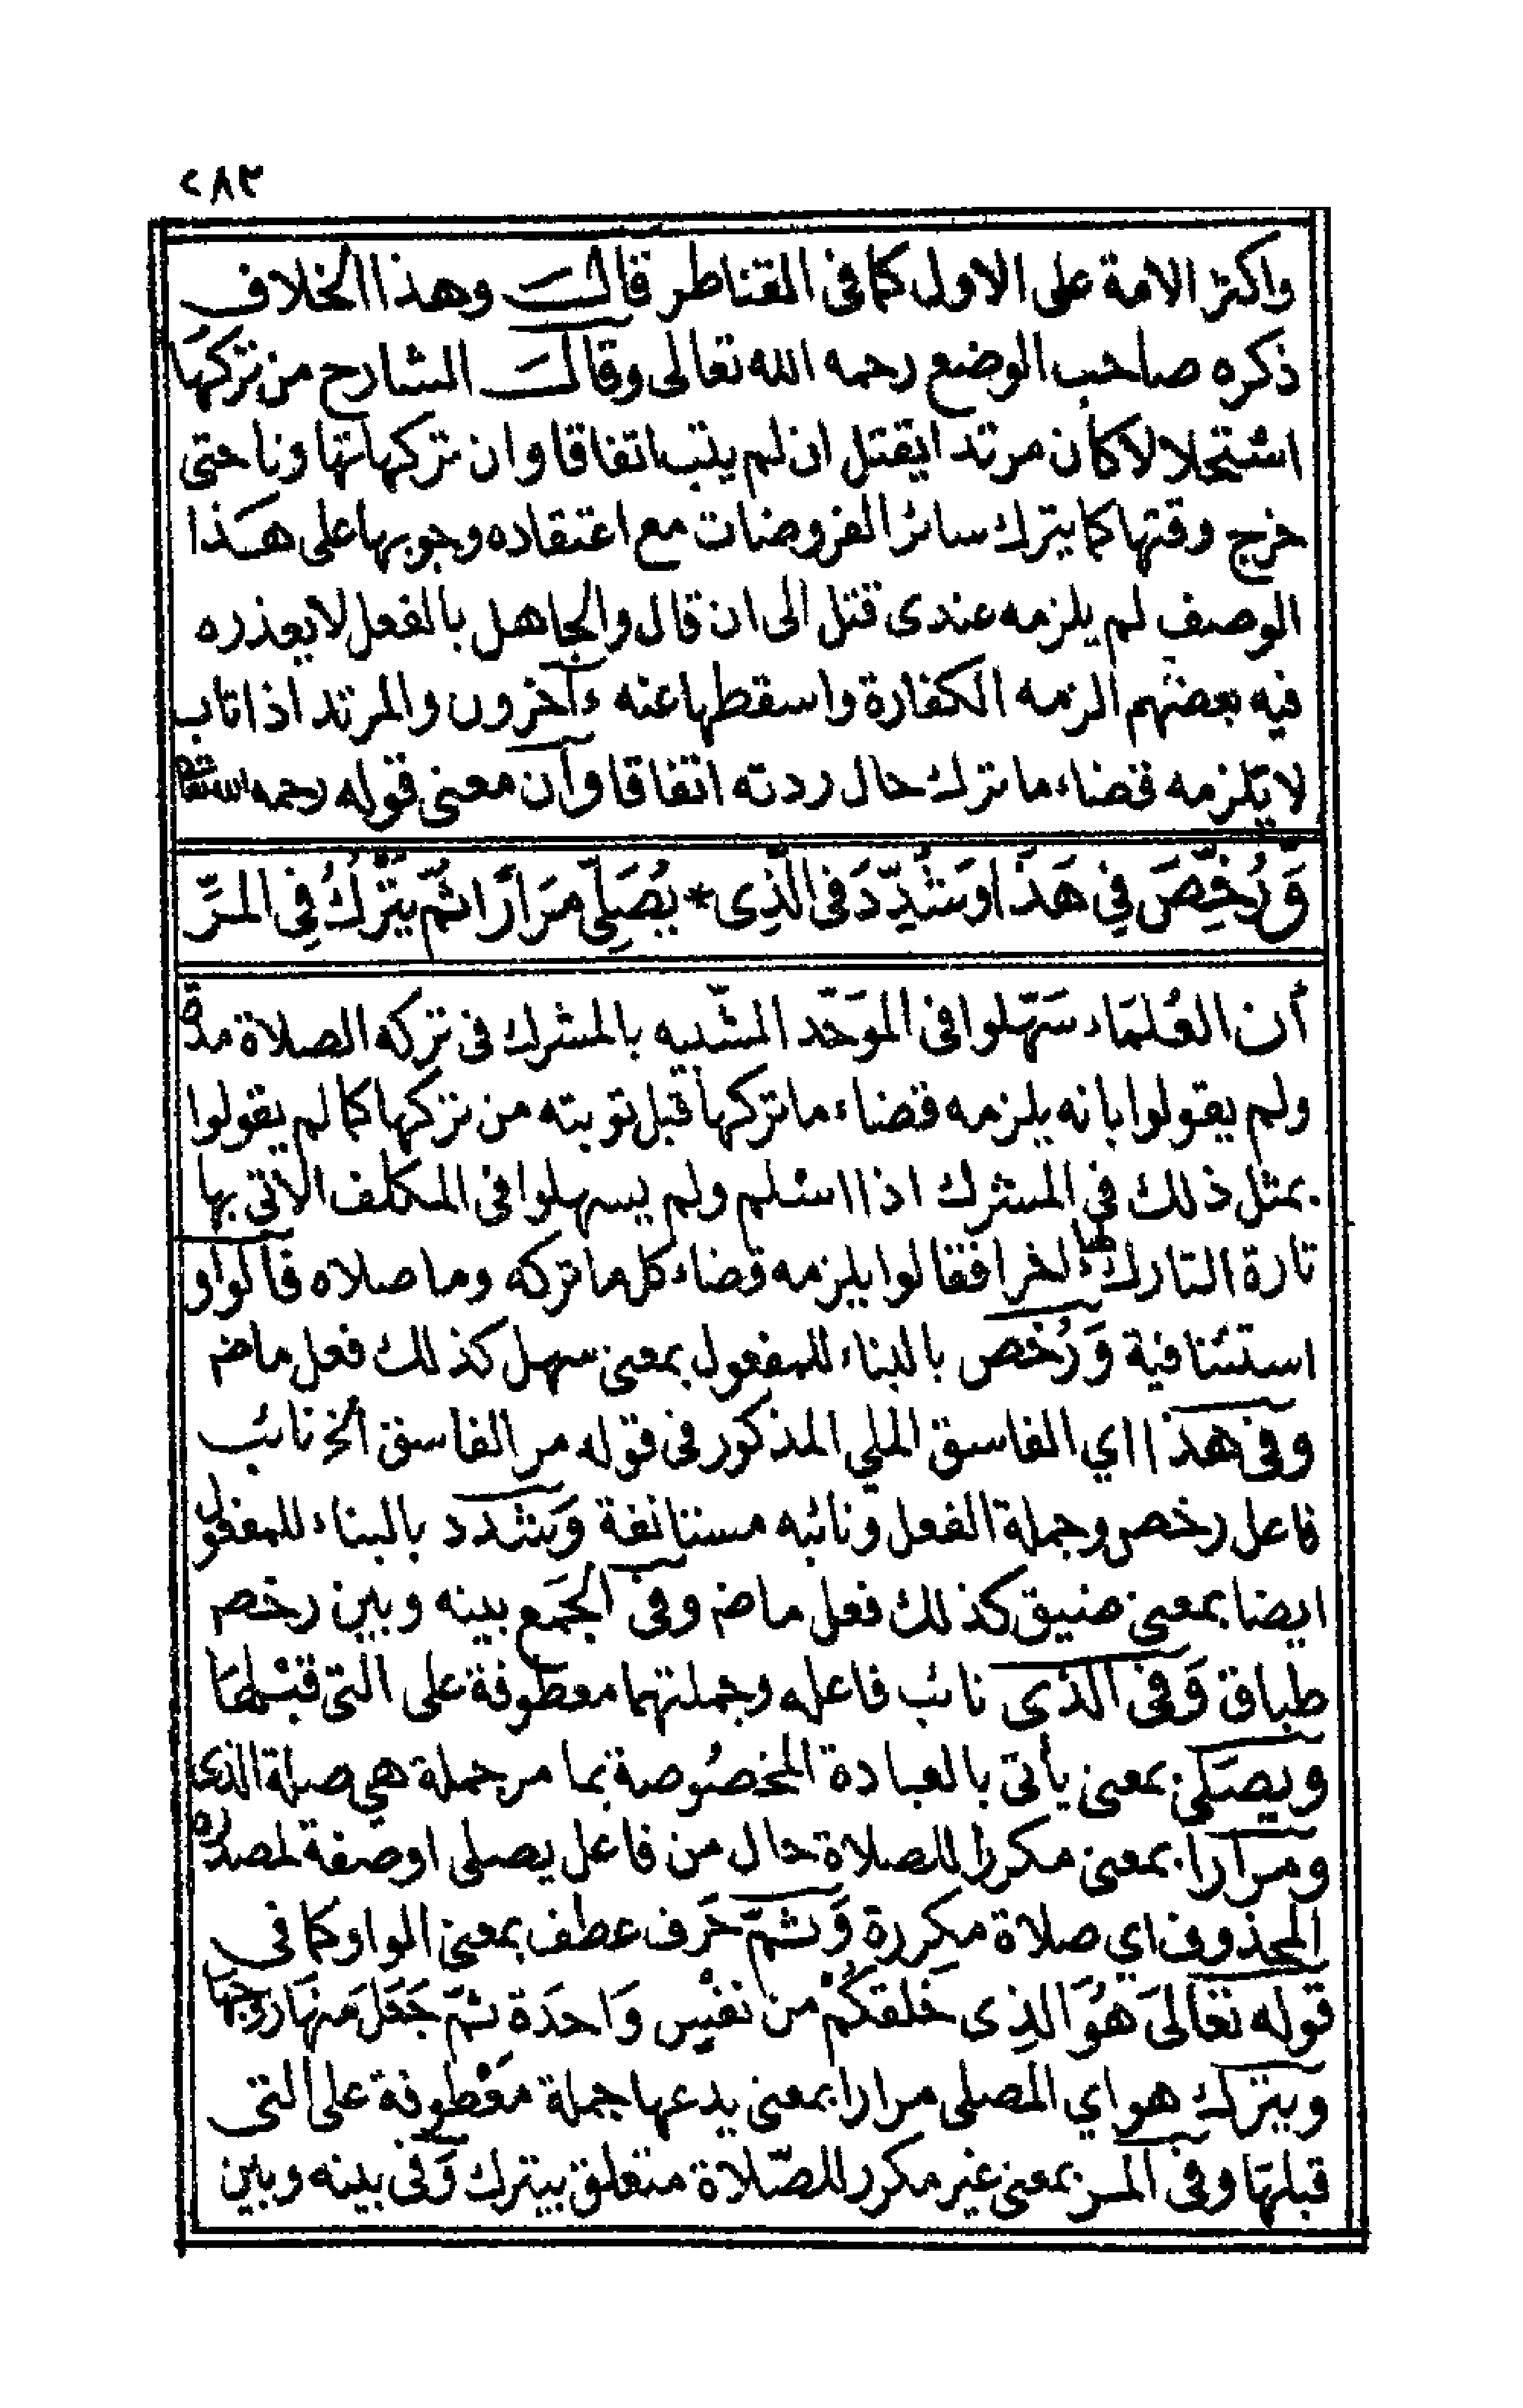 ٢٨٣
واكثر الامة على الاول كما فى القناطر قال وهذا الخلاف
ذكره صاحب الوضع رحمه الله تعالى وقال الشارح من تركها
استحلالا كان مرتدا يقتل ان لم يتب اتفاقا وان تركها تهاونا حتى
خرج وقتها كما يترك سائر المفروضات مع اعتقاده وجوبها على هذا
الوصف لم يلزمه عندى قتل الى ان قال والجاهل بالفعل لا يعذره
فيه بعضهم الزمه الكفارة واسقطها عنه ءآخرون والمرتد اذا تاب
لا يلزمه قضاء ما ترك حال ردته اتفاقا وان معنى قوله رحمه الله تعالى
وَرُخِّصَ فِي هَذَا وَشُدِّدَ فى الَّذِى * يُصَلِّى مِرَارًا ثُمَّ يَتْرُكُ فِى المَرِّ
أن العُلمَاء سَهّلوا فى الموَحّد المشبيه بالمشرك فى تركه الصلاة مدة
ولم يقولوا بانه يلزمه قضاء ما تركها قبل توبته من تركها كما لم يقولوا
بمثل ذلك في المشرك اذا اسلم ولم يسهلوا فى المكلف الآتى بها
تارة التارك لها ءاخرا فقالوا يلزمه قضاء كل ما تركه وما صلاه قالواو
استئنافية وَرُخص بالبناء للمفعول بمعنى سهل كذلك فعل ماض
وفى هذا اي الفاسق الملي المذكور فى قوله مر الفاسق الخ نائب
فاعل رخص وجملة الفعل ونائبه مستانفة وَشدد بالبناء للمفعول
ايضا بمعنى ضيق كذلك فعل ماض وفى الجَمع بينه وبين رخص
طباق وَفى الذى نائب فاعله وجملتهما معطوفة على التى قبْلهَا
ويصَلى بمعنى يأتى بالعبادة المخصُوصة بما مر جملة هي صلة الذى
ومرارا بمعنى مكررا للصلاة حال من فاعل يصلى او صفة لمصدره
المحذوف اي صلاة مكررة وَثمّ حَرف عطف بمعنى الواو كما فى
قوله تعَالىَ هُوَ الذِى خَلقكُمْ من نفْسٍ وَاحدَة ثمّ جَعَلَ منهَا زوجهَا
ويترك هو اي المصلى مرارا بمعنى يدعها جملة معْطوفة على التى
قبلهَا وفى المر بمعنى غير مكرر للصّلاة متعلق بيترك وَفى بينه وبين